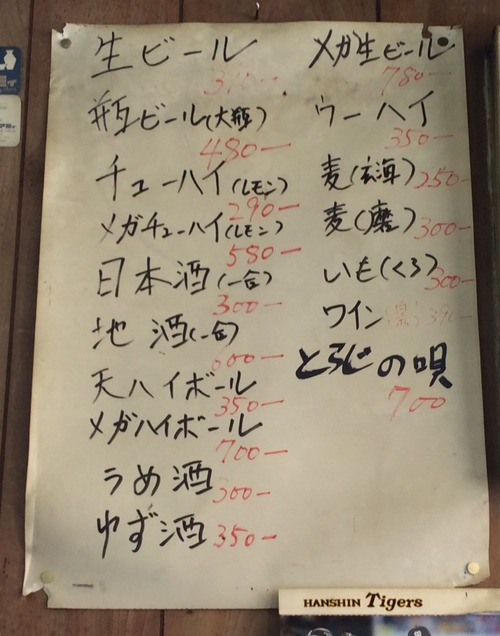 生ビール
370ー
瓶ビール(大瓶)
480ー
チューハイ(レモン)
290ー
メガチューハイ(レモン)
580ー
日本酒(一合)
300ー
地酒(一合)
600ー
天ハイボール
350ー
メガハイボール
700ー
うめ酒
300ー
ゆず酒 350ー
メガ生ビール
780ー
ウーハイ
350ー
麦(玄海) 250ー
麦(磨) 300ー
いも(くろ) 300ー
ワイン
とらじの唄
700
HANSHIN Tigers